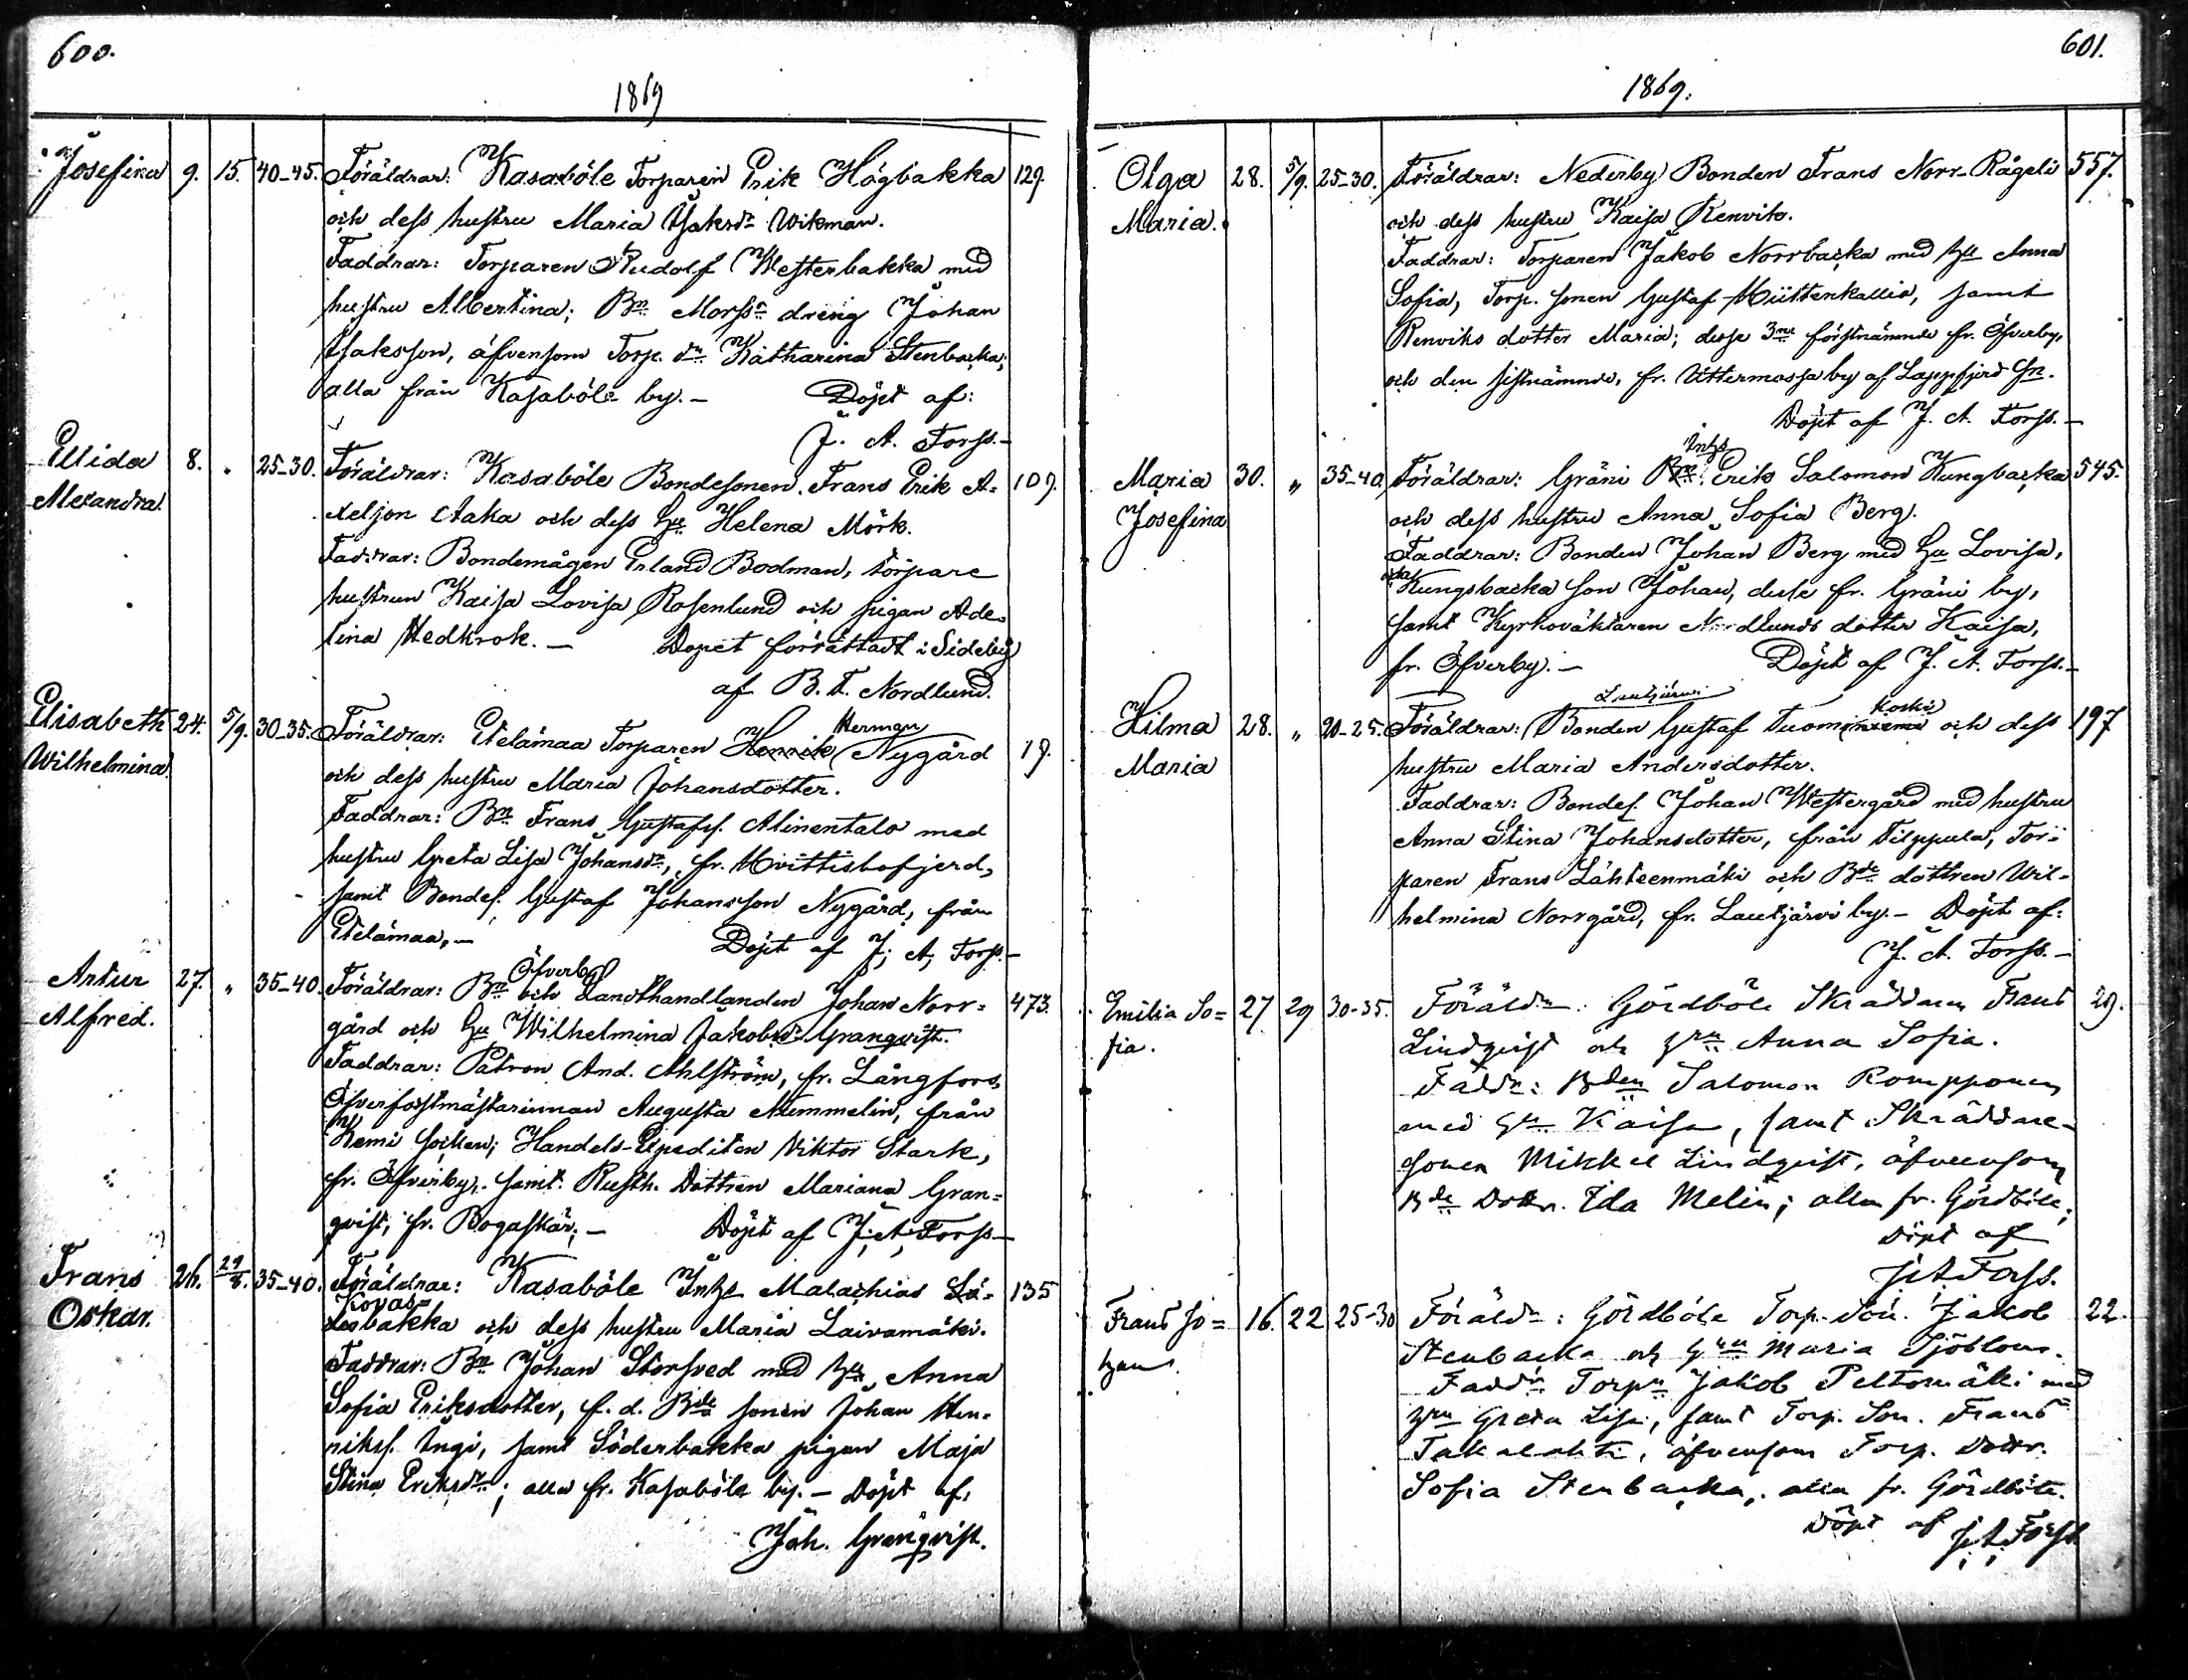 600.
1869
Josefina 9. 15. 40-45. Föräldrar: Kasaböle Torparen Erik Högbakka 129.
och dess hustru Maria Isaksdr Wikman.
Faddrar: Torparen Rudolf Westerbakka med
hustru Albertina; Bn dreng Johan
Isaksson, äfvensom Torp. dr Katharina Stenbacka;
alla från Kasaböle by.- Döpt af:
J. A. Forss.-
Ellida 8. " 25-30. Föräldrar: Kasaböle Bondesonen Frans Erik A- 109.
Alexandra.
xelson Aaka och dess hu Helena Mörk.
Faddrar: Bondemågen Erland Bodman, torpare
hustrun Kaisa Lovisa Rosenlund och pigan Ade-
lina Hedkrok.- Dopet förrättadt i Sideby
af B. T. Nordlund.
Elisabeth 24. 5/9. 30-35. Föräldrar: Etelämaa Torparen Henrik Herman Nygård 19.
Wilhelmina.
och dess hustru Maria Johansdotter.
Faddrar: Bn Frans Gustafs. Alinentalo med
hustru Greta Lisa Johansdr, fr. Hvittisbofjerd,
samt Bondes. Gustaf Johansson Nygård, från
Etelämaa,- Döpt af J. A. Forss.-
Artur 27. " 35-40. Föräldrar: Bn och Öfverby Landthandlanden Johan Norr- 473.
Alfred.
gård och hu Wilhelmina Jakobsdr Granqvist.
Faddrar: Patron And. Ahlström, fr. Långfors,
Öfverforstmästarinnan Augusta Mummelin, från
Kemi socken; Handels-Expediten Viktor Stark,
fr. Öfverby, samt Rusth. Dottren Mariana Gran-
qvist, fr. Bogaskär;- Döpt af J. A. Forss-
Frans 26. 29/8. 35-40. Föräldrar: Kasaböle Inhs Malachias Lä- 135
Oskar.
Kovas=
bakka och dess hustru Maria Laivamäki.
Faddrar: Bn Johan Storsved med hu Anna
Sofia Eriksdotter, f. d. Bde sonen Johan Hen-
riks. Ingi, samt Söderbakka pigan Maja
Stina Eriksdr; alla fr. Kasaböle by.- Döpt af:
Joh. Granqvist.
601.
1869.
Olga 28. 5/9. 25-30. Föräldrar: Nederby Bonden Frans Norr-Rågeli 557.
Maria.
och dess hustru Kaisa Renvik.
Faddrar: Torparen Jakob Norrbacka med hu Anna
Sofia, Torp. sonen Gustaf Hiittenkallio, samt
Renviks dotter Maria; desse 3ne förstnämnde fr. Öfverby,
och den sistnämnde, fr. Uttermossa by af Lappfjerd Sn.
Döpt af J. A. Forss.-
Maria 30. " 35-40. Föräldrar: Gräni Bn Inhs Erik Salomon Kungbacka 545.
Josefina
och dess hustru Anna Sofia Berg.
Faddrar: Bonden Johan Berg med hu Lovisa,
Kungsbacka son Johan, desse fr. Gräni by,
samt Kyrkoväktaren Nordlunds dotter Kaisa,
fr. Öfverby.- Döpt af J. A. Forss.-
Lautjärvi
Hilma 28. " 20-25. Föräldrar: Bonden Gustaf Tuominiemi koski och dess 197
Maria
hustru Maria Andersdotter.
Faddrar: Bondes. Johan Westergård med hustru
Anna Stina Johansdotter, från Tilppula, Tor-
paren Frans Lähteenmäki och Bde dottren Wil-
helmina Norrgård, fr. Lautjärvi by.- Döpt af:
J. A. Forss.-
Emilia So= 27 29 30-35. Föräldr: Gördböle Skräddaren Frans 29.
fia.
Lindqvist och hun Anna Sofia.
Faddr: Bden Salomon Rompponen
med hun Kaisa, samt Skräddare-
sonen Mikkel Lindqvist, äfvensom
Bde Dottr. Ida Melin; alla fr. Gördböle;
Döpt af
J A Forss.
Frans Jo= 16. 22 25-30 Föräldr: Gördböle Torp. Son. Jakob 22.
han.
Stenbacka och hun Maria Sjöblom.
Faddr Torpn Jakob Peltomäki med
hun Greta Lisa, samt Torp. Son. Frans
Takalahti, äfvensom Torp. Dottr.
Sofia Stenbacka, alla fr. Gördböle.
Döpt af J. A. Forss.